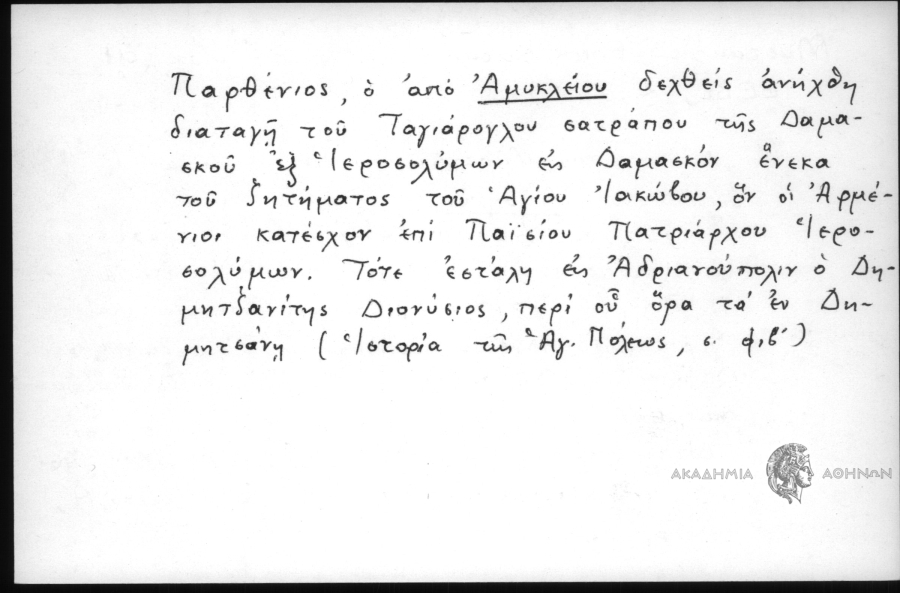 Παρθένιος, ὁ ἀπό Ἀμυκλείου δεχθείς ἀνήχθη
διαταγῇ τοῦ Ταγιάρογλου σατράπου τῆς Δαμα-
σκοῦ ἐξ Ἱεροσολύμων εἰς Δαμασκόν ἕνεκα
τοῦ ζητήματος τοῦ Ἁγίου Ἰακώβου, ὅν οἱ Ἀρμέ-
νιοι κατέσχον ἐπί Παϊσίου Πατριάρχου Ἱερο-
σολύμων. Τότε ἐστάλη εἰς Ἀδριανούπολιν ὁ Δη-
μητζανίτης Διονύσιος, περί οὗ ὅρα τά ἐν Δη-
μητσάνῃ (Ἱστορία τῆς Ἁγ. Πόλεως, σ. φιβ΄)
ΑΚΑΔΗΜΙΑ ΑΘΗΝΩΝ